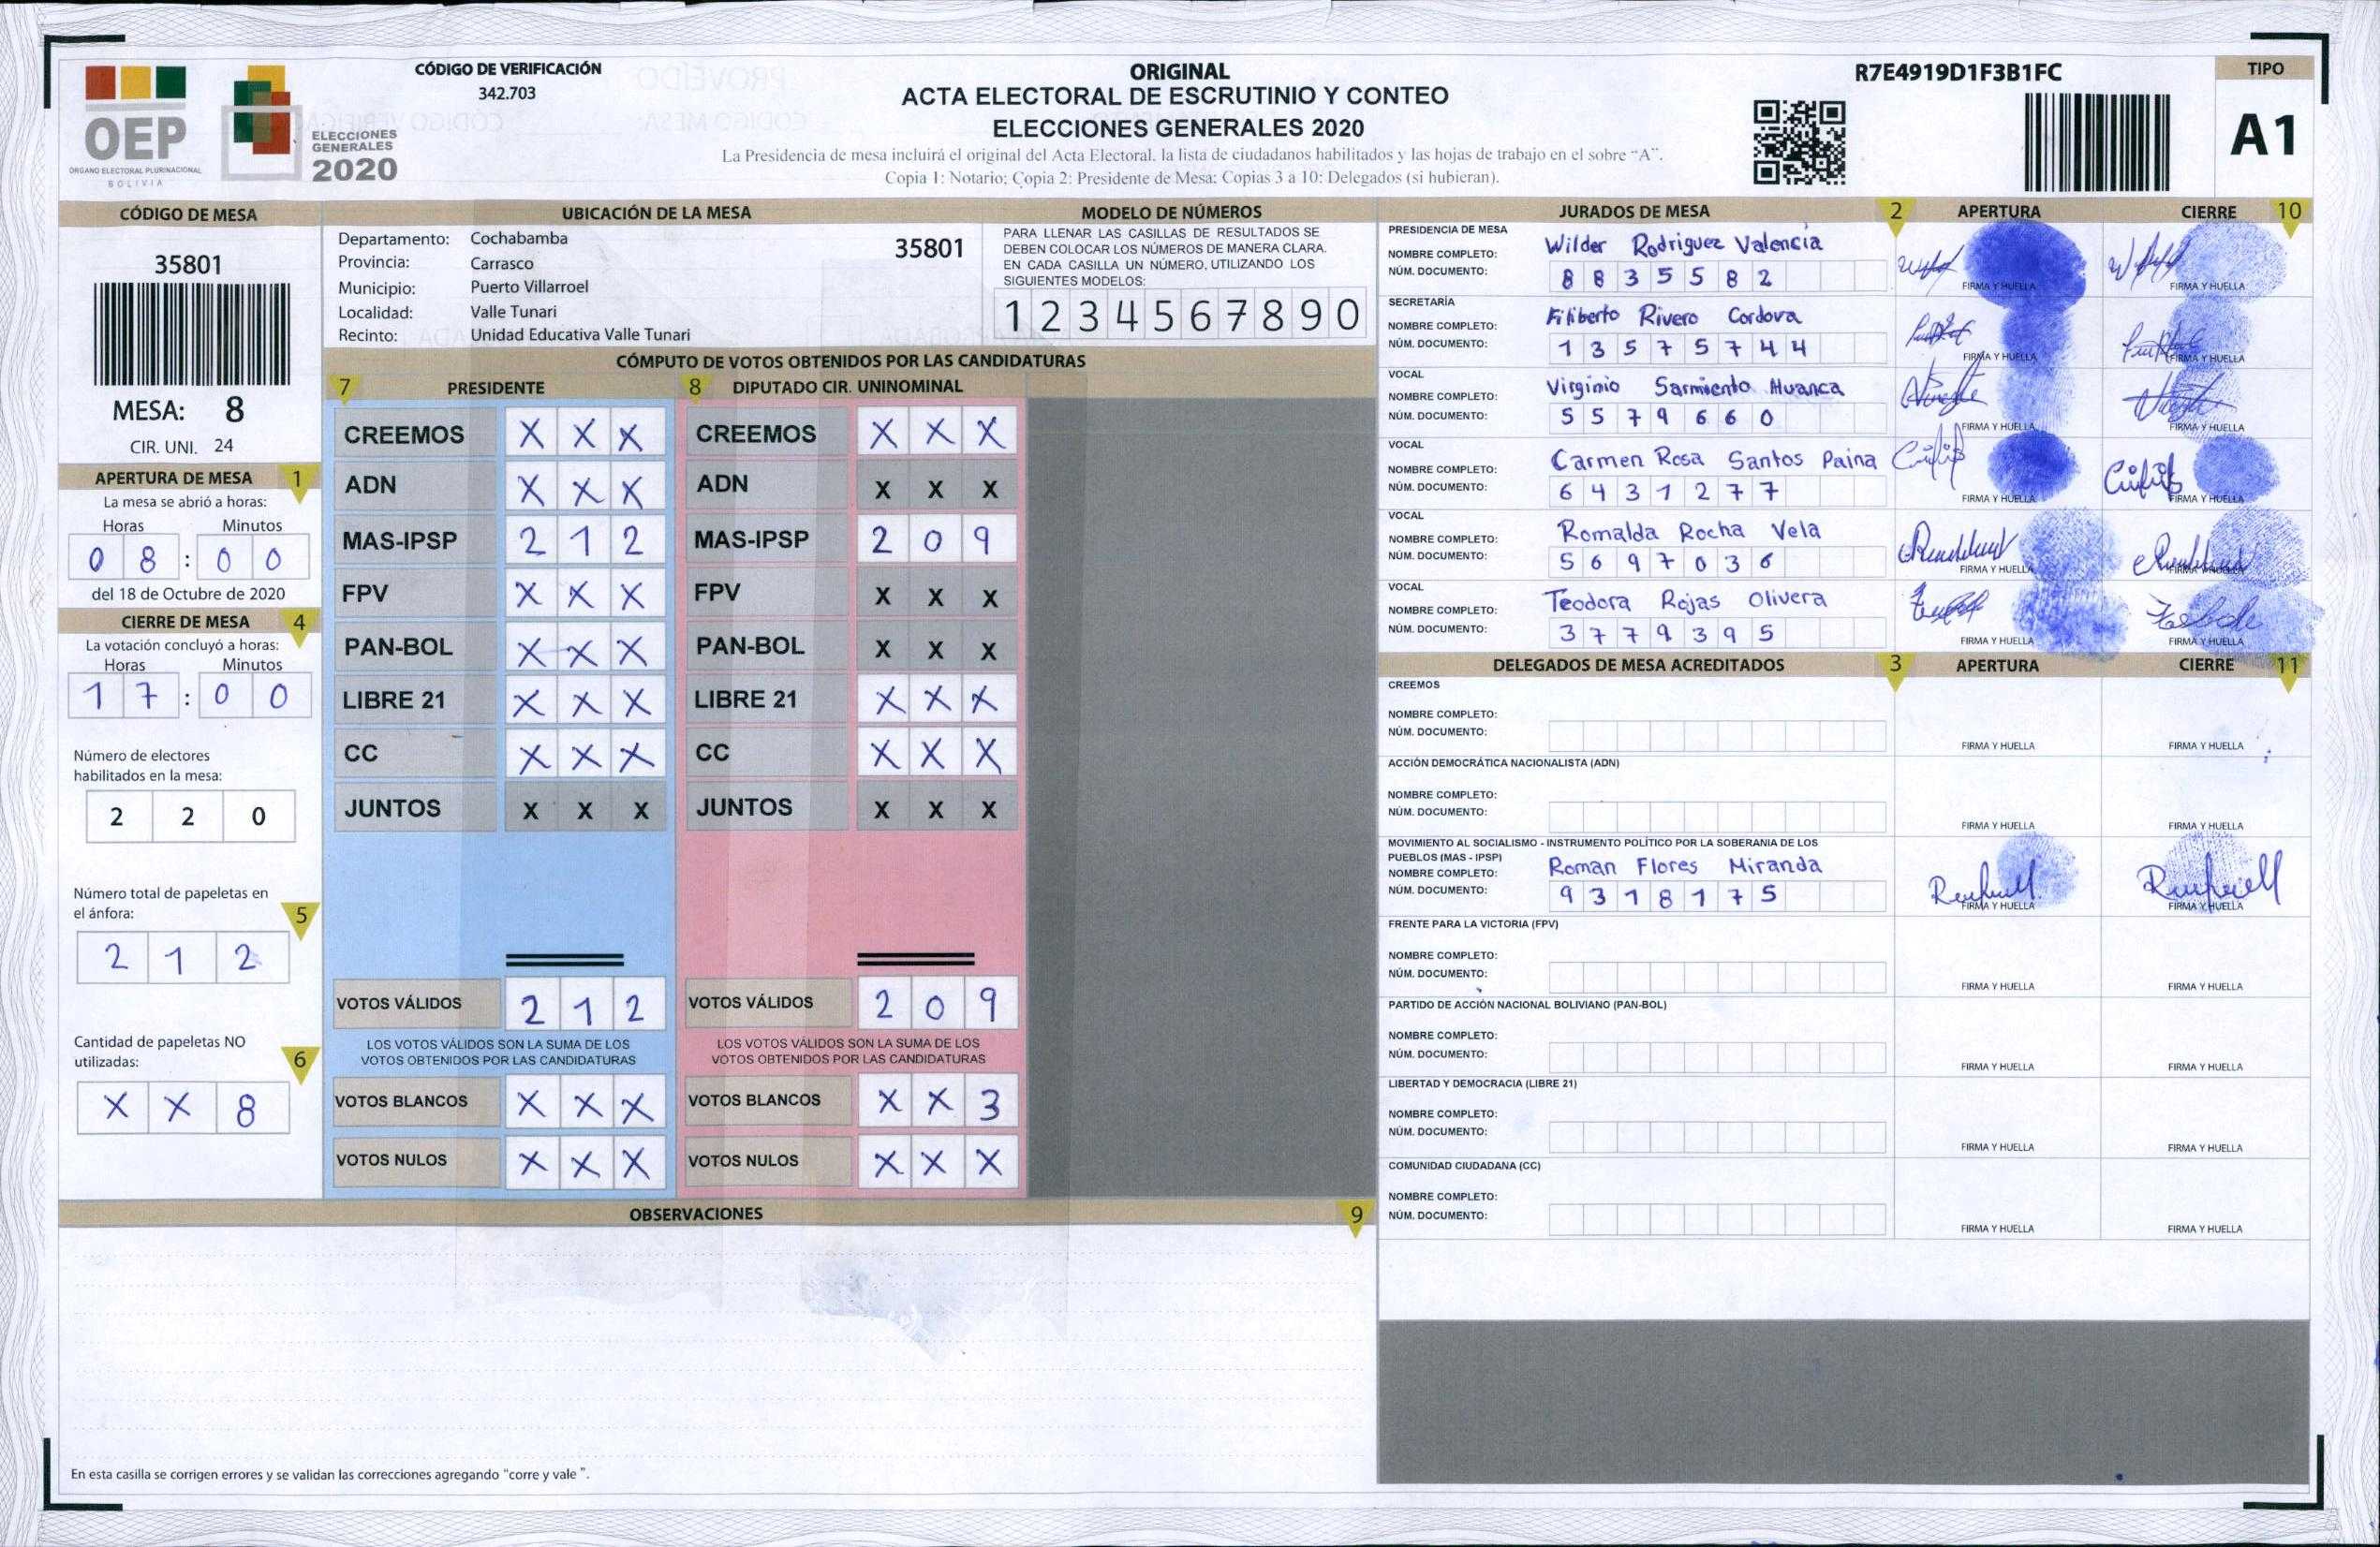 OEP
ÓRGANO ELECTORAL PLURINACIONAL
BOLIVIA
ELECCIONES
GENERALES
2020
CÓDIGO DE VERIFICACIÓN
342.703
ORIGINAL
ACTA ELECTORAL DE ESCRUTINIO Y CONTEO
ELECCIONES GENERALES 2020
La Presidencia de mesa incluirá el original del Acta Electoral, la lista de ciudadanos habilitados y las hojas de trabajo en el sobre "A".
Copia 1: Notario; Copia 2: Presidente de Mesa; Copias 3 a 10: Delegados (si hubieran).
R7E4919D1F3B1FC
TIPO
A1
CÓDIGO DE MESA
35801
MESA: 8
CIR. UNI. 24
APERTURA DE MESA 1
La mesa se abrió a horas:
Horas Minutos
0 8 : 0 0
del 18 de Octubre de 2020
CIERRE DE MESA 4
La votación concluyó a horas:
Horas Minutos
1 7 : 0 0
Número de electores
habilitados en la mesa:
2 2 0
Número total de papeletas en
el ánfora: 5
2 1 2
Cantidad de papeletas NO
utilizadas: 6
X X 8
UBICACIÓN DE LA MESA
Departamento: Cochabamba
Provincia: Carrasco
Municipio: Puerto Villarroel
Localidad: Valle Tunari
Recinto: Unidad Educativa Valle Tunari
35801
MODELO DE NÚMEROS
PARA LLENAR LAS CASILLAS DE RESULTADOS SE
DEBEN COLOCAR LOS NÚMEROS DE MANERA CLARA.
EN CADA CASILLA UN NÚMERO, UTILIZANDO LOS
SIGUIENTES MODELOS:
1 2 3 4 5 6 7 8 9 0
CÓMPUTO DE VOTOS OBTENIDOS POR LAS CANDIDATURAS
7 PRESIDENTE 8 DIPUTADO CIR. UNINOMINAL
CREEMOS X X X CREEMOS X X X
ADN X X X ADN X X X
MAS-IPSP 2 1 2 MAS-IPSP 2 0 9
FPV X X X FPV X X X
PAN-BOL X X X PAN-BOL X X X
LIBRE 21 X X X LIBRE 21 X X X
CC X X X CC X X X
JUNTOS X X X JUNTOS X X X
VOTOS VÁLIDOS 2 1 2 VOTOS VÁLIDOS 2 0 9
LOS VOTOS VÁLIDOS SON LA SUMA DE LOS LOS VOTOS VÁLIDOS SON LA SUMA DE LOS
VOTOS OBTENIDOS POR LAS CANDIDATURAS VOTOS OBTENIDOS POR LAS CANDIDATURAS
VOTOS BLANCOS X X X VOTOS BLANCOS X X 3
VOTOS NULOS X X X VOTOS NULOS X X X
OBSERVACIONES 9
En esta casilla se corrigen errores y se validan las correcciones agregando "corre y vale".
JURADOS DE MESA 2 APERTURA CIERRE 10
PRESIDENCIA DE MESA
NOMBRE COMPLETO: Wilder Rodriguez Valencia
NÚM. DOCUMENTO: 8 8 3 5 5 8 2
FIRMA Y HUELLA FIRMA Y HUELLA
SECRETARÍA
NOMBRE COMPLETO: Filiberto Rivero Cordova
NÚM. DOCUMENTO: 1 3 5 7 5 7 4 4
FIRMA Y HUELLA FIRMA Y HUELLA
VOCAL
NOMBRE COMPLETO: Virginio Sarmiento Huanca
NÚM. DOCUMENTO: 5 5 7 9 6 6 0
FIRMA Y HUELLA FIRMA Y HUELLA
VOCAL
NOMBRE COMPLETO: Carmen Rosa Santos Paina
NÚM. DOCUMENTO: 6 4 3 1 2 7 7
FIRMA Y HUELLA FIRMA Y HUELLA
VOCAL
NOMBRE COMPLETO: Romalda Rocha Vela
NÚM. DOCUMENTO: 5 6 9 7 0 3 6
FIRMA Y HUELLA FIRMA Y HUELLA
VOCAL
NOMBRE COMPLETO: Teodora Rojas Olivera
NÚM. DOCUMENTO: 3 7 7 9 3 9 5
FIRMA Y HUELLA FIRMA Y HUELLA
DELEGADOS DE MESA ACREDITADOS 3 APERTURA CIERRE 11
CREEMOS
NOMBRE COMPLETO:
NÚM. DOCUMENTO:
FIRMA Y HUELLA FIRMA Y HUELLA
ACCIÓN DEMOCRÁTICA NACIONALISTA (ADN)
NOMBRE COMPLETO:
NÚM. DOCUMENTO:
FIRMA Y HUELLA FIRMA Y HUELLA
MOVIMIENTO AL SOCIALISMO - INSTRUMENTO POLÍTICO POR LA SOBERANIA DE LOS
PUEBLOS (MAS - IPSP)
NOMBRE COMPLETO: Roman Flores Miranda
NÚM. DOCUMENTO: 9 3 1 8 1 7 5
FIRMA Y HUELLA FIRMA Y HUELLA
FRENTE PARA LA VICTORIA (FPV)
NOMBRE COMPLETO:
NÚM. DOCUMENTO:
FIRMA Y HUELLA FIRMA Y HUELLA
PARTIDO DE ACCIÓN NACIONAL BOLIVIANO (PAN-BOL)
NOMBRE COMPLETO:
NÚM. DOCUMENTO:
FIRMA Y HUELLA FIRMA Y HUELLA
LIBERTAD Y DEMOCRACIA (LIBRE 21)
NOMBRE COMPLETO:
NÚM. DOCUMENTO:
FIRMA Y HUELLA FIRMA Y HUELLA
COMUNIDAD CIUDADANA (CC)
NOMBRE COMPLETO:
NÚM. DOCUMENTO:
FIRMA Y HUELLA FIRMA Y HUELLA